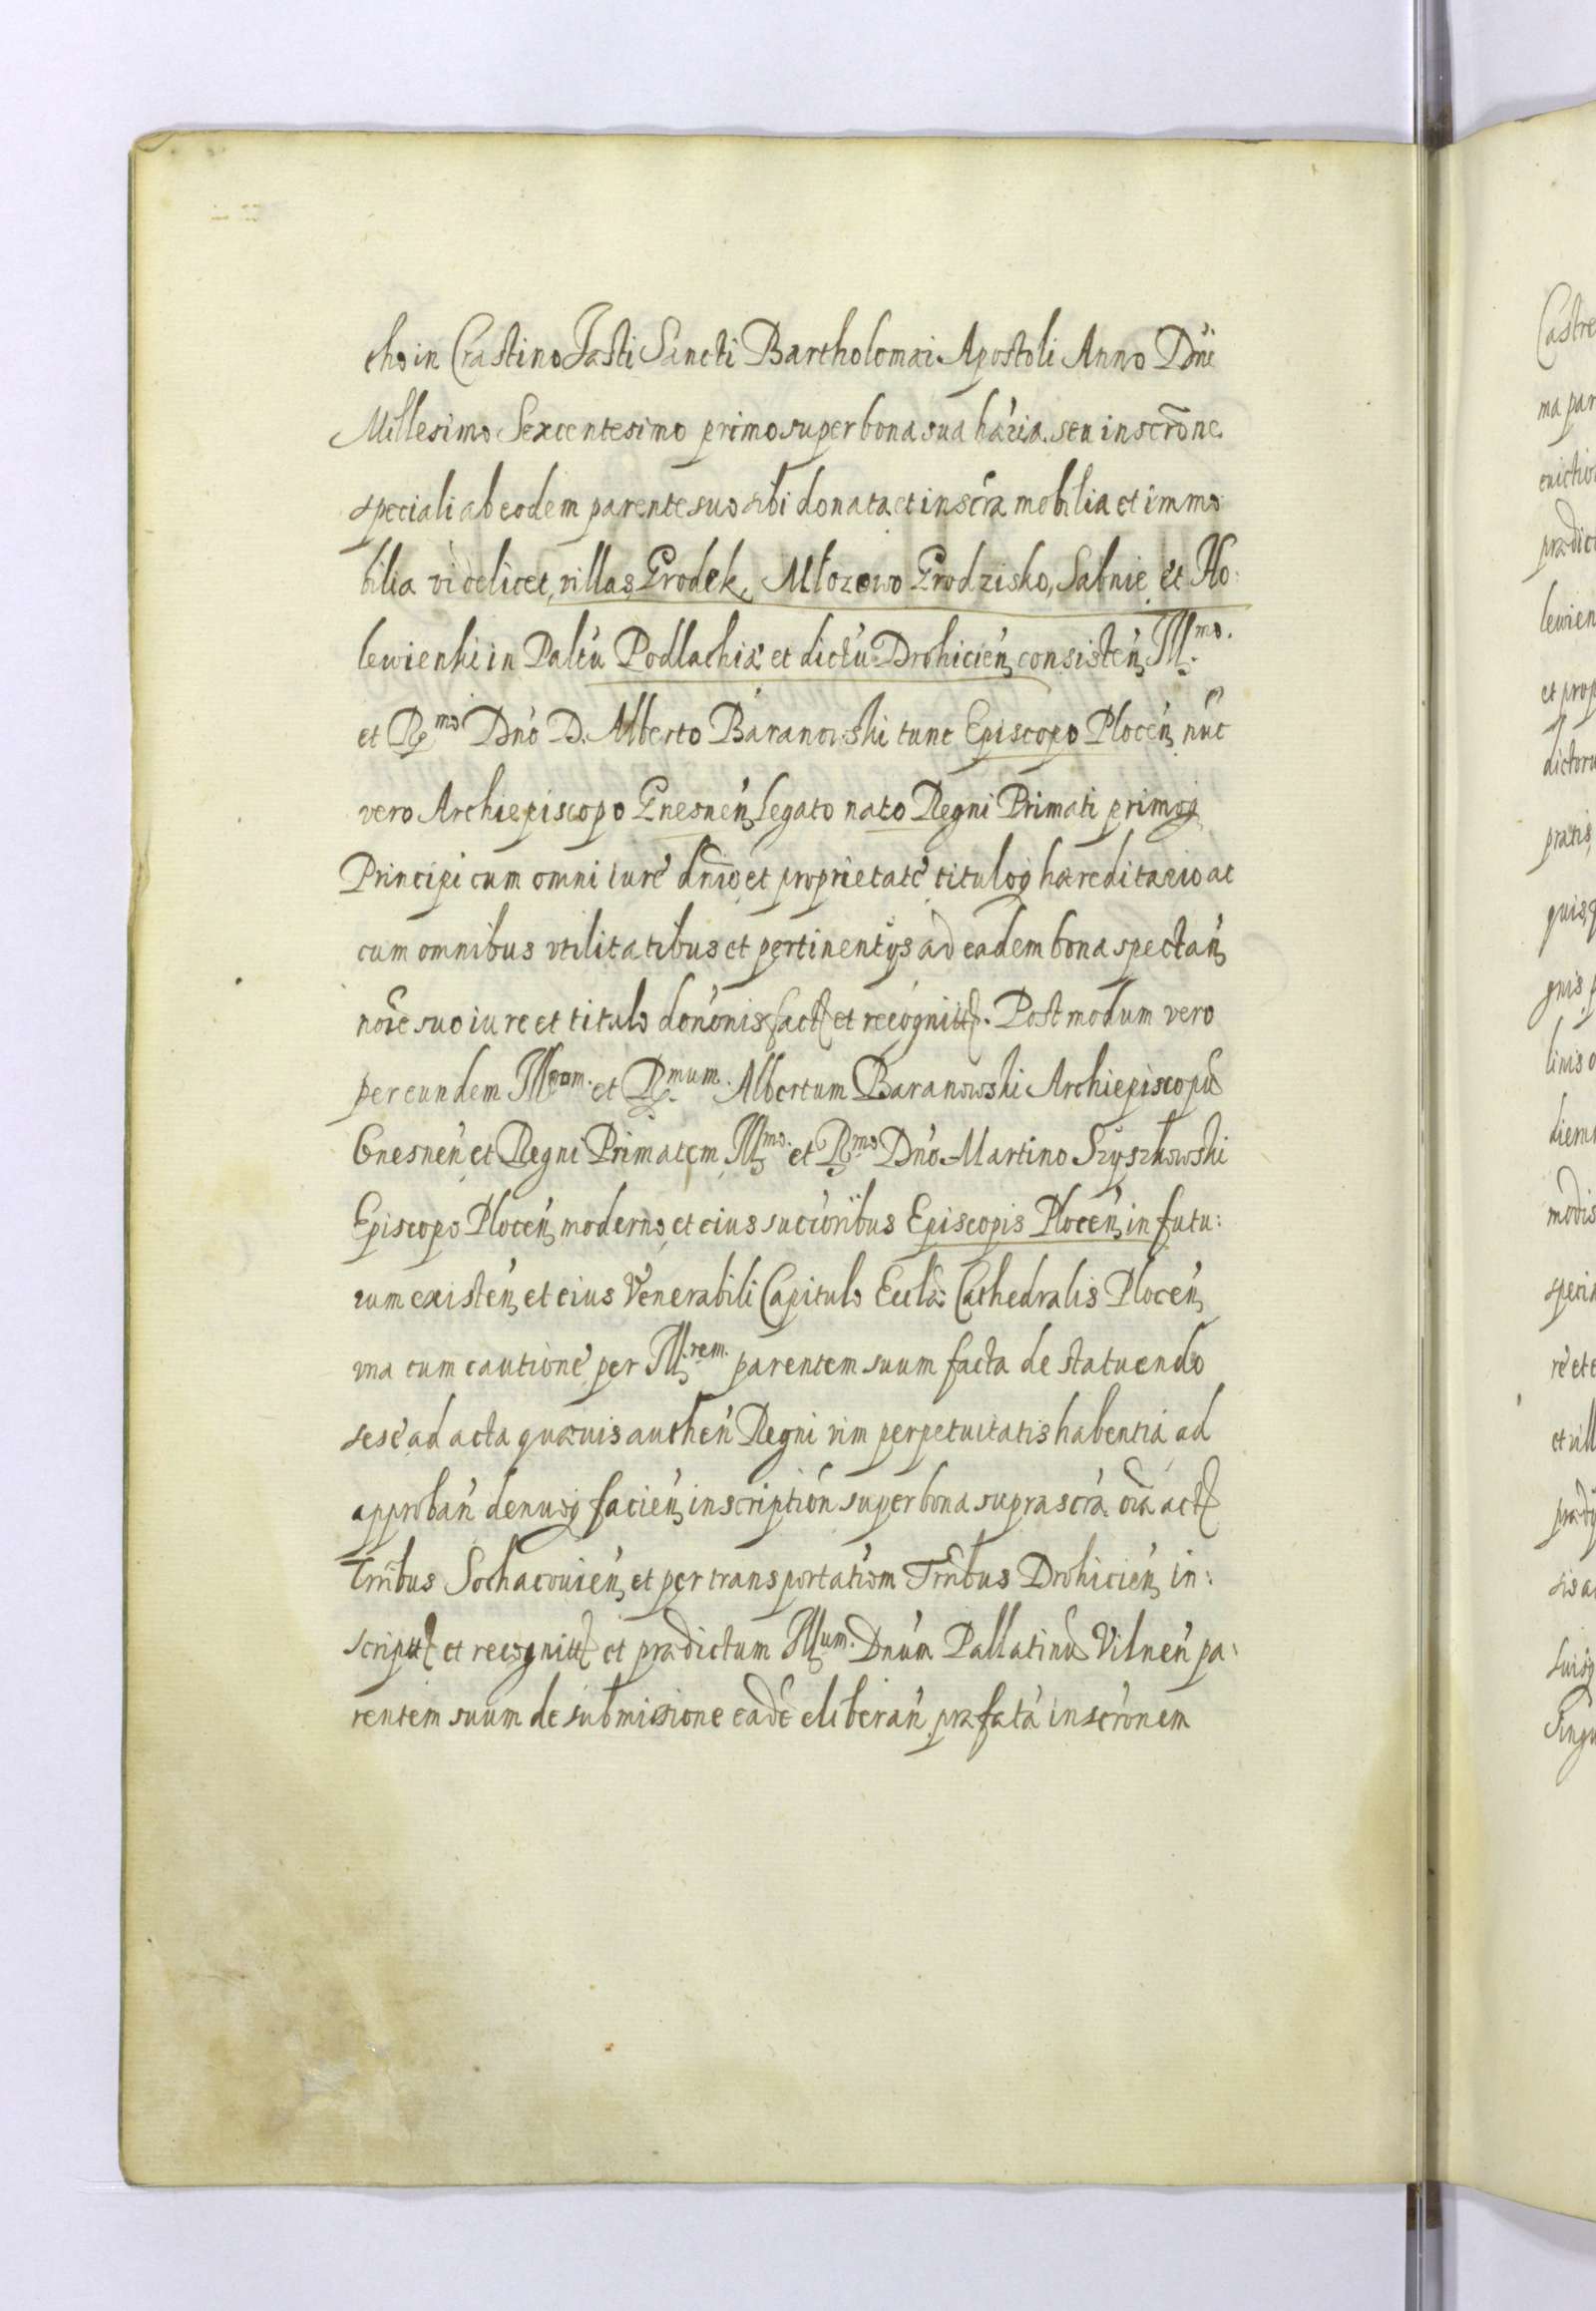 cho in Crastino Fasti Sancti Bartholomæi Apostoli Anno Dńi
Millesimo Sexcentesimo primo super bona sua hária seu inscr̃one
speciali ab eodem parente suo sibi donata et inscra mobilia et immo
bilia videlicet, villas Grodek, Młozowo Grodzisko, Sabnie et Ho:
lewienki in Paltu Podlachiæ et dictu Drohicień consisteń Illmo.
et Rmo Dno D. Alberto Baranowski tunc Episcopo Ploceń nuc
vero Archiepiscopo Gnesneń Legato nato Regni Primati primoq
Principi cum omni iure dnio et proprietate tituloq hæreditario ac
cum omnibus vtilitatibus et pertinentijs ad eadem bona spectań
noie suo iure et titulo donónis fact et recognitt. Post modum vero
per eundem Illmum. et Rmum. Albertum Baranowski Archiepiscopu
Gnesneń et Regni Primatem Illmo. et Rmo Dno Martino Szyszkowski
Episcopo Ploceń moderno et eius succóribus Episcopis Ploceń in futu:
rum existeń et eius Venerabili Capitulo Ecclæ Cathedralis Ploceń
vna cum cautione per Illrem. parentem suum facta de statuendo
sese ad acta quæuis autheń Regni vim perpetuitatis habentia ad
approbań denuoq facień inscriptioń super bona suprascra. oia act
Trribus Sochacouień et per transportatiom Trribus Drohicień in:
scriptt et recognitt et prædictum Illum. Dnum Pallatinu Vilneń pa:
rentem suum de submissione eade eliberań præfata inscronem
Castre
ma par
euictio
prædict
lewien
et prop
dictoru
pratis,
quis,
gnis,
linis
diem
modis
speci
re et e
et vill
sis a
suisq
Singu